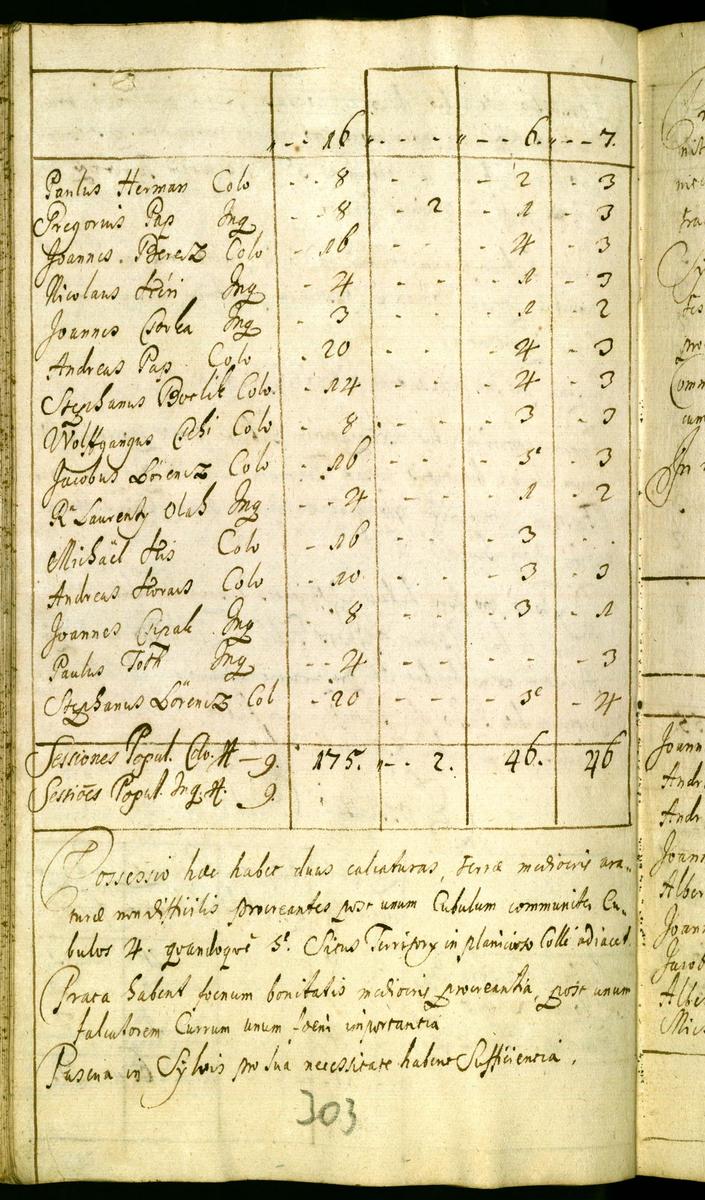 „ - - 16 „ - - - „ - - 6. „ - - 7.
Paulus Herman Colo - - 8 - - - - 2 - 3
Gregorius Pap Inq - - 8 - - 2 - 1 - 3
Joannes Beresz Colo - 16 - - - - 4 - 3
Nicolaus Inq - - 4 - - - - 1 - 3
Joannes Inq - - 3 - - - - 1 - 2
Andreas Pap Colo - 20 - - - - 4 - 3
Stephanus Colo - 14 - - - - 4 - 3
Wolffgangus Colo - 8 - - - - 3 - 3
Jacobus Lörencz Colo - 16 - - - - 5 - 3
Ra Laurenty Olah Inq - - 4 - - - - 1 - 2
Michaël Colo - 16 - - - - 3 - -
Andreas Colo - 10 - - - - 3 - 3
Joannes Inq - - 8 - - - - 3 - 1
Paulus Toth Inq - - 4 - - - - - - 3
Stephanus Lörencz Col - 20 - - - - 3 - 4
Sessiones Popul. Colo. # - 9. 175. „ - - 2. 46. 46
Sessiões Popul. Inq. # 9.
Possessio hæc habet duas calcaturas, terræ mediocris ara-
turæ non difficilis procreantes post unum Cubulum communiter Cu-
bulos 4. quandoqvè 5. Situs Territory in planicie Colle adiacet
Prata habent foenum bonitatis mediocris procreantia, post unum
falcatorem Currum unum foeni importantia
Pascua in Sylvis pro sua necessitate habent Sufficientia.
303